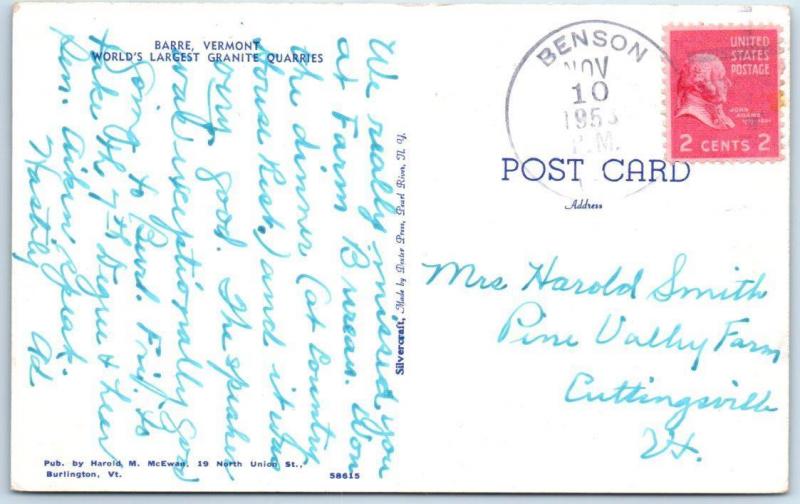 BARRE, VERMONT
WORLD'S LARGEST GRANITE QUARRIES
We really missed you
at Farm Bureau. Won
the dinner (at Country
House Rest.) and it was
very good. The speaker
was exceptionally good
Going to Burl. Fri. to
take the 7th Degree & hear
Sen. Aiken speak.
Hastily Ad
Silvercraft, Made by Dexter Press, Pearl River, N. Y.
Pub. by Harold M. McEwan, 19 North Union St.,
Burlington, Vt.
58615
BENSON
NOV
10
195
P.M.
UNITED
STATES
POSTAGE
JOHN
ADAMS
2 CENTS 2
POST CARD
Address
Mrs Harold Smith
Pine Valley Farm
Cuttingsville
Vt.